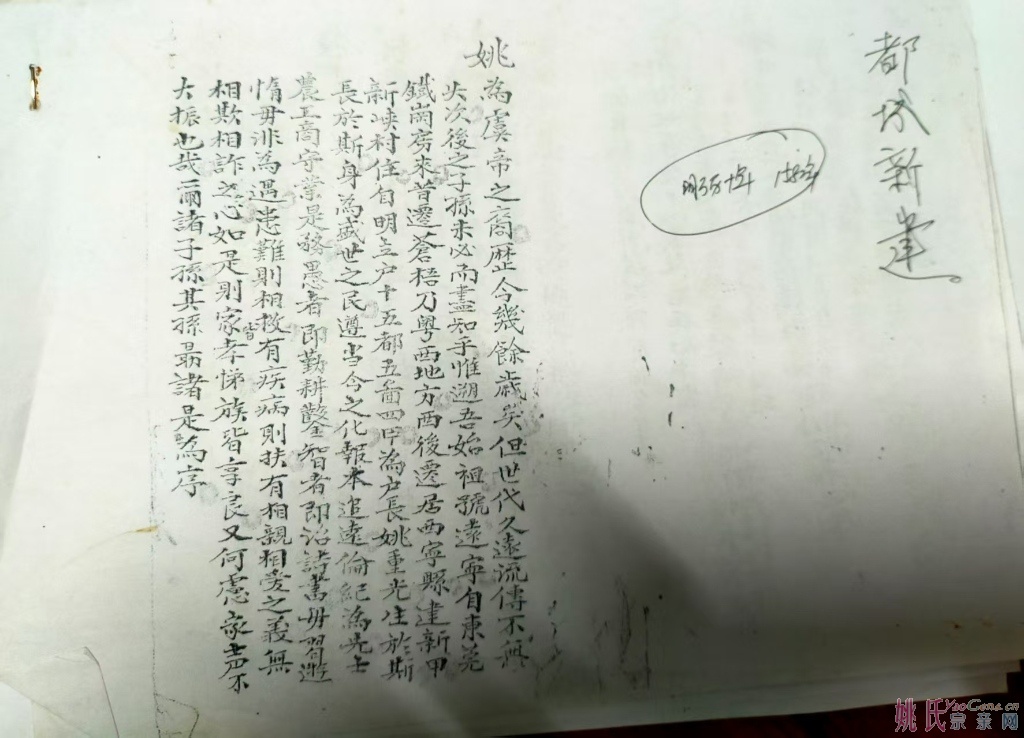 都城新建。
明弘治十年 1497年
姚
為虞帝之裔歷今幾餘歲矣但世代久遠流傳不無
失次後之子孫未必而盡知乎惟遡吾始祖號遠寧自東莞
鐵崗房來昔遷蒼梧乃粵西地方西後遷居西寧縣建新甲
新峽村住自明立户十五都五啚四甲為户長姚重光生於斯
長於斯身為盛世之民遵当今之化報本追遠倫紀為先士
農工商守業是務愚者即勤耕鑿智者即治詩書毋習遊
惰毋非為遇患難則相救有疾病則扶有相親相愛之義無
相欺相詐之心如是則家皆孝悌族皆享良又何慮家声不
大振也哉爾諸子孫其孫勗諸是為序
姚氏宗亲网
YaoGens.cn